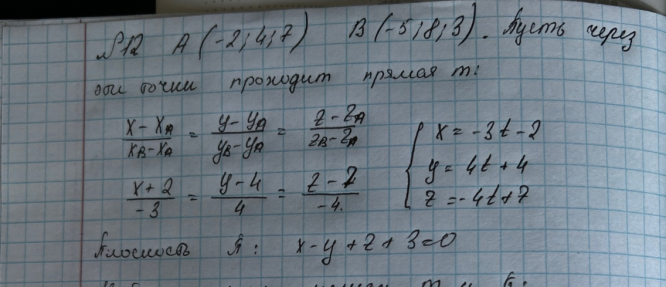 №12 A (-2; 4; 7) B (-5; 8; 3). Пусть через
эти точки проходит прямая m:
x - xA / xB - xA = y - yA / yB - yA = z - zA / zB - zA
x + 2 / -3 = y - 4 / 4 = z - 7 / -4.
{ x = -3t - 2
y = 4t + 4
z = -4t + 7
Плоскость π: x - y + z + 3 = 0